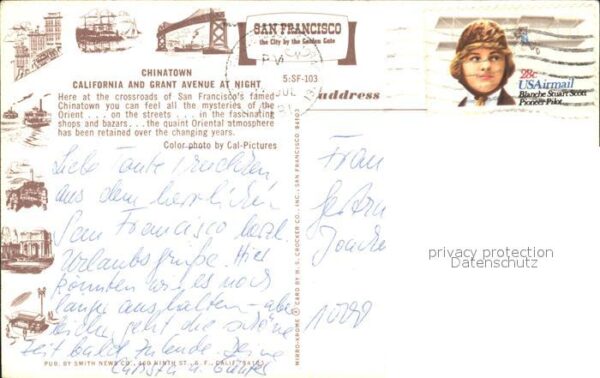 SAN FRANCISCO
the City by the Golden Gate
PM
JUL
28c
USAirmail
Blanche Stuart Scott
Pioneer Pilot
CHINATOWN
CALIFORNIA AND GRANT AVENUE AT NIGHT
5:SF-103
address
Here at the crossroads of San Francisco's famed
Chinatown you can feel all the mysteries of the
Orient . . . on the streets . . . in the fascinating
shops and bazars . . . the quaint Oriental atmosphere
has been retained over the changing years.
Color photo by Cal-Pictures
Liebe Tante
aus dem herrlichen
San Francisco herzl.
Urlaubsgrüße. Hier
könnten wir es noch
lange aushalten - aber
leider geht die schöne
Zeit bald zu Ende. Deine
Christa u. Günter
MIRRO-KROME ® CARD BY H. S. CROCKER CO., INC., SAN FRANCISCO, CA. 94103
Frau
privacy protection
Datenschutz
PUB. BY SMITH NEWS CO., 460 NINTH ST., S. F., CALIF. 94103